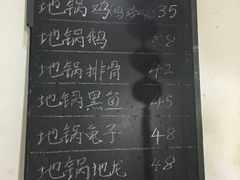 地锅鸡 35
地锅鹅 58
地锅排骨 42
地锅黑鱼 45
地锅兔子 48
地锅地龙 48